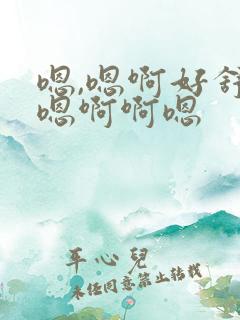 嗯,嗯啊好舒
嗯啊啊嗯
平心兒
未经同意禁止转载